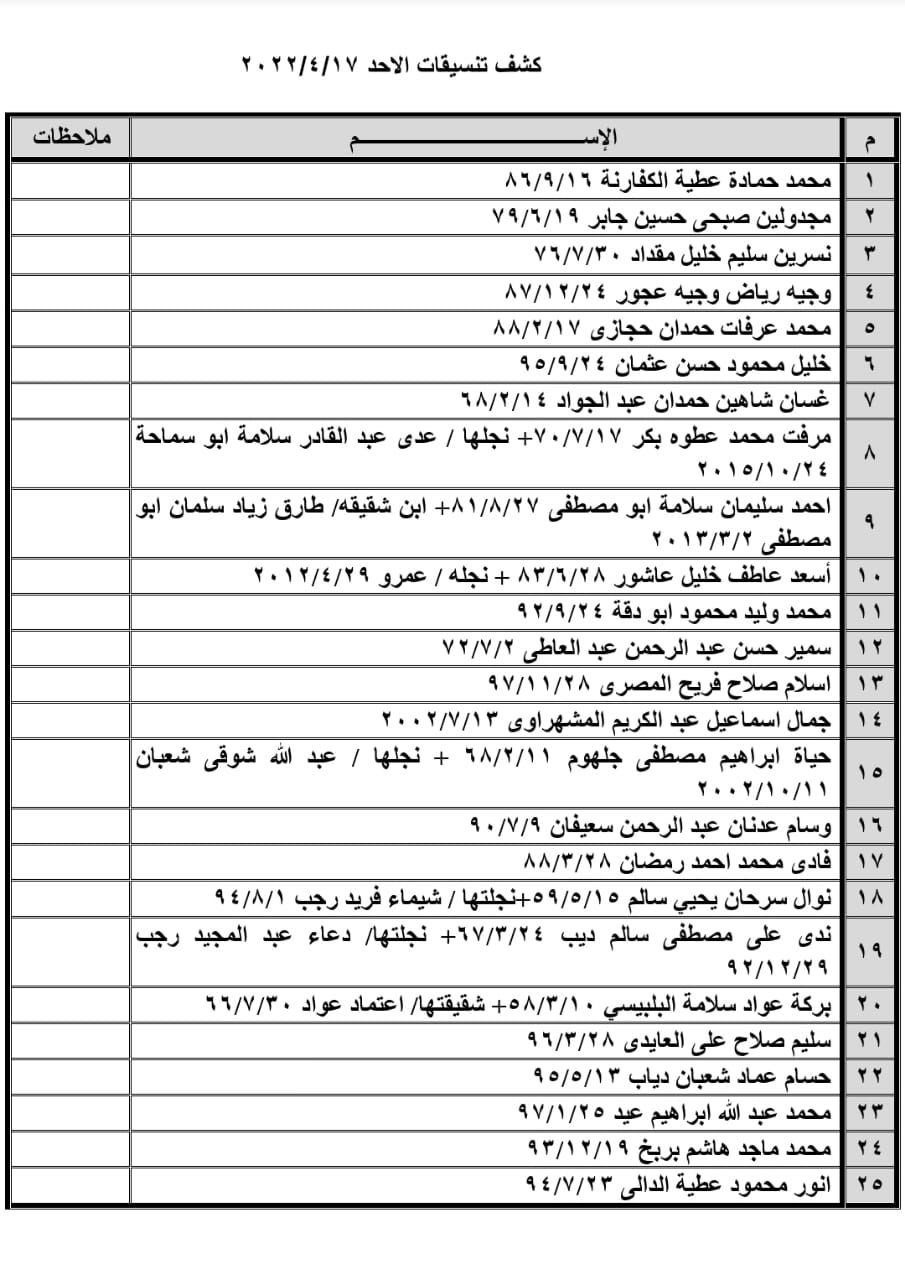 كشف تنسيقات الاحد ٢٠٢٢/٤/١٧
م الإســــــــم ملاحظات
١ محمد حمادة عطية الكفارنة ٨٦/٩/١٦
٢ مجدولين صبحى حسين جابر ٧٩/٦/١٩
٣ نسرين سليم خليل مقداد ٧٦/٧/٣٠
٤ وجيه رياض وجيه عجور ٨٧/١٢/٢٤
٥ محمد عرفات حمدان حجازى ٨٨/٢/١٧
٦ خليل محمود حسن عثمان ٩٥/٩/٢٤
٧ غسان شاهين حمدان عبد الجواد ٦٨/٢/١٤
٨ مرفت محمد عطوه بكر ٧٠/٧/١٧+ نجلها / عدى عبد القادر سلامة ابو سماحة
٢٠١٥/١٠/٢٤
٩ احمد سليمان سلامة ابو مصطفى ٨١/٨/٢٧+ ابن شقيقه/ طارق زياد سلمان ابو
مصطفى ٢٠١٣/٣/٢
١٠ أسعد عاطف خليل عاشور ٨٣/٦/٢٨ + نجله / عمرو ٢٠١٢/٤/٢٩
١١ محمد وليد محمود ابو دقة ٩٢/٩/٢٤
١٢ سمير حسن عبد الرحمن عبد العاطى ٧٢/٧/٢
١٣ اسلام صلاح فريح المصرى ٩٧/١١/٢٨
١٤ جمال اسماعيل عبد الكريم المشهراوى ٢٠٠٢/٧/١٣
١٥ حياة ابراهيم مصطفى جلهوم ٦٨/٢/١١ + نجلها / عبد الله شوقى شعبان
٢٠٠٢/١٠/١١
١٦ وسام عدنان عبد الرحمن سعيفان ٩٠/٧/٩
١٧ فادى محمد احمد رمضان ٨٨/٣/٢٨
١٨ نوال سرحان يحيي سالم ٥٩/٥/١٥+نجلتها / شيماء فريد رجب ٩٤/٨/١
١٩ ندى على مصطفى سالم ديب ٦٧/٣/٢٤+ نجلتها/ دعاء عبد المجيد رجب
٩٢/١٢/٢٩
٢٠ بركة عواد سلامة البلبيسي ٥٨/٣/١٠+ شقيقتها/ اعتماد عواد ٦٦/٧/٣٠
٢١ سليم صلاح على العايدى ٩٦/٣/٢٨
٢٢ حسام عماد شعبان دياب ٩٥/٥/١٣
٢٣ محمد عبد الله ابراهيم عيد ٩٧/١/٢٥
٢٤ محمد ماجد هاشم بربخ ٩٣/١٢/١٩
٢٥ انور محمود عطية الدالى ٩٤/٧/٢٣